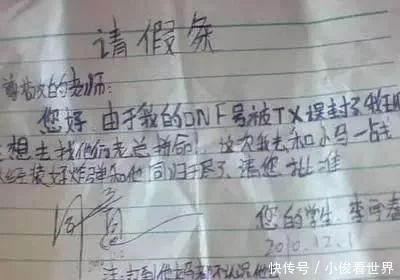 请假条
尊敬的老师:
您好,由于我的DNF号被TX误封了,我现
想去找他们老总拼命!这次我去和小马一战
经装好炸弹和他同归于尽了,请您批准
同意
您的学生:李
2010.12.1
快传号/小俊看世界